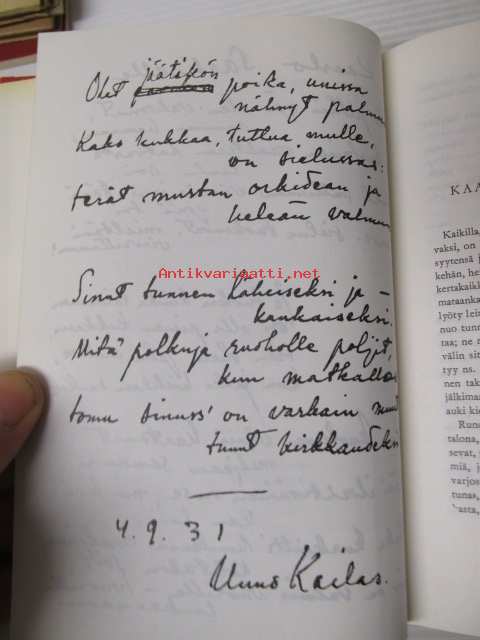 Olet jäätikön poika, unissa
nähnyt palmun
Kaks kukkaa, tuttua mulle,
on sielussas:
terät mustan orkidean ja
heleän valmun
Sinut tunnen läheiseksi ja –
kaukaiseksi.
Mitä polkuja ruoholle poljit,
kun matkallas
tomu sinuss' on varkain
tunut kirkkaudeksi
4.9.31
Uuno Kailas.
Antikvariaatti.net
KAA
Kaikilla,
vaksi, on
syytensä j
kehän, he
kertakaikk
mataanka
lyöty leist
nuo tunn
taa; ne r
välin sit
tyy ns.
nen tak
jälkima
auki kie
Rune
talona,
sevat,
miä, j
varjos
tunas,